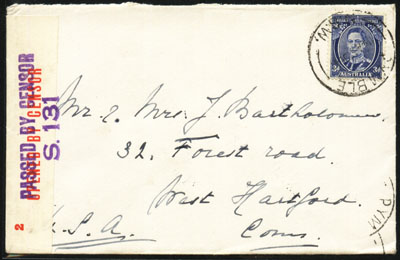 PASSED BY CENSOR
OPENED BY CENSOR
S. 131
2
AUSTRALIA
PYMBLE
Mr. & Mrs. J. Bartholomew
32. Forest road.
West Hartford.
Conn.
U.S.A.
PYM